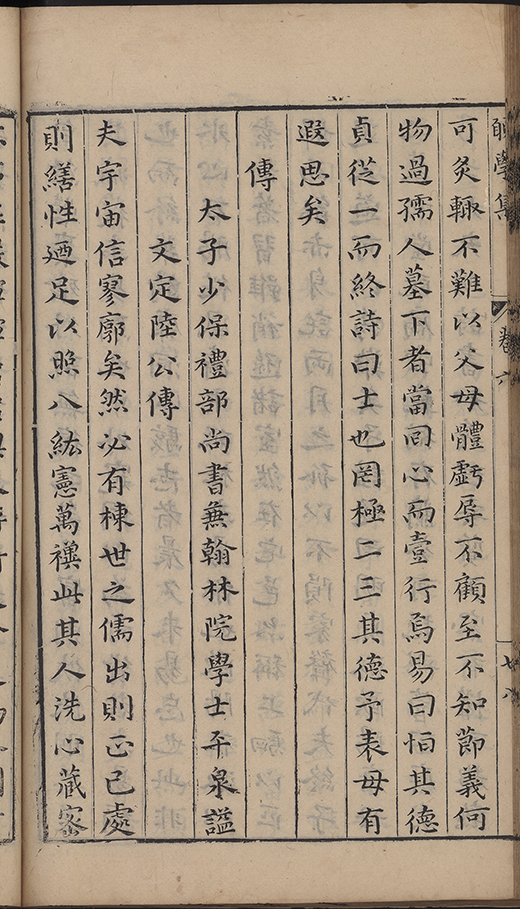 學集 卷六 七八
可炙輙不難以父母體虧辱不顧至不知節義何
物過孺人墓下者當回心而壹行焉易曰恒其德
貞從一而終詩曰士也罔極二三其德予表毋有
遐思矣
傳
太子少保禮部尚書兼翰林院學士平泉謚
文定陸公傳
夫宇宙信寥廓矣然必有棟世之儒出則正己處
則繕性廼足以照八紘憲萬禩此其人洗心藏密